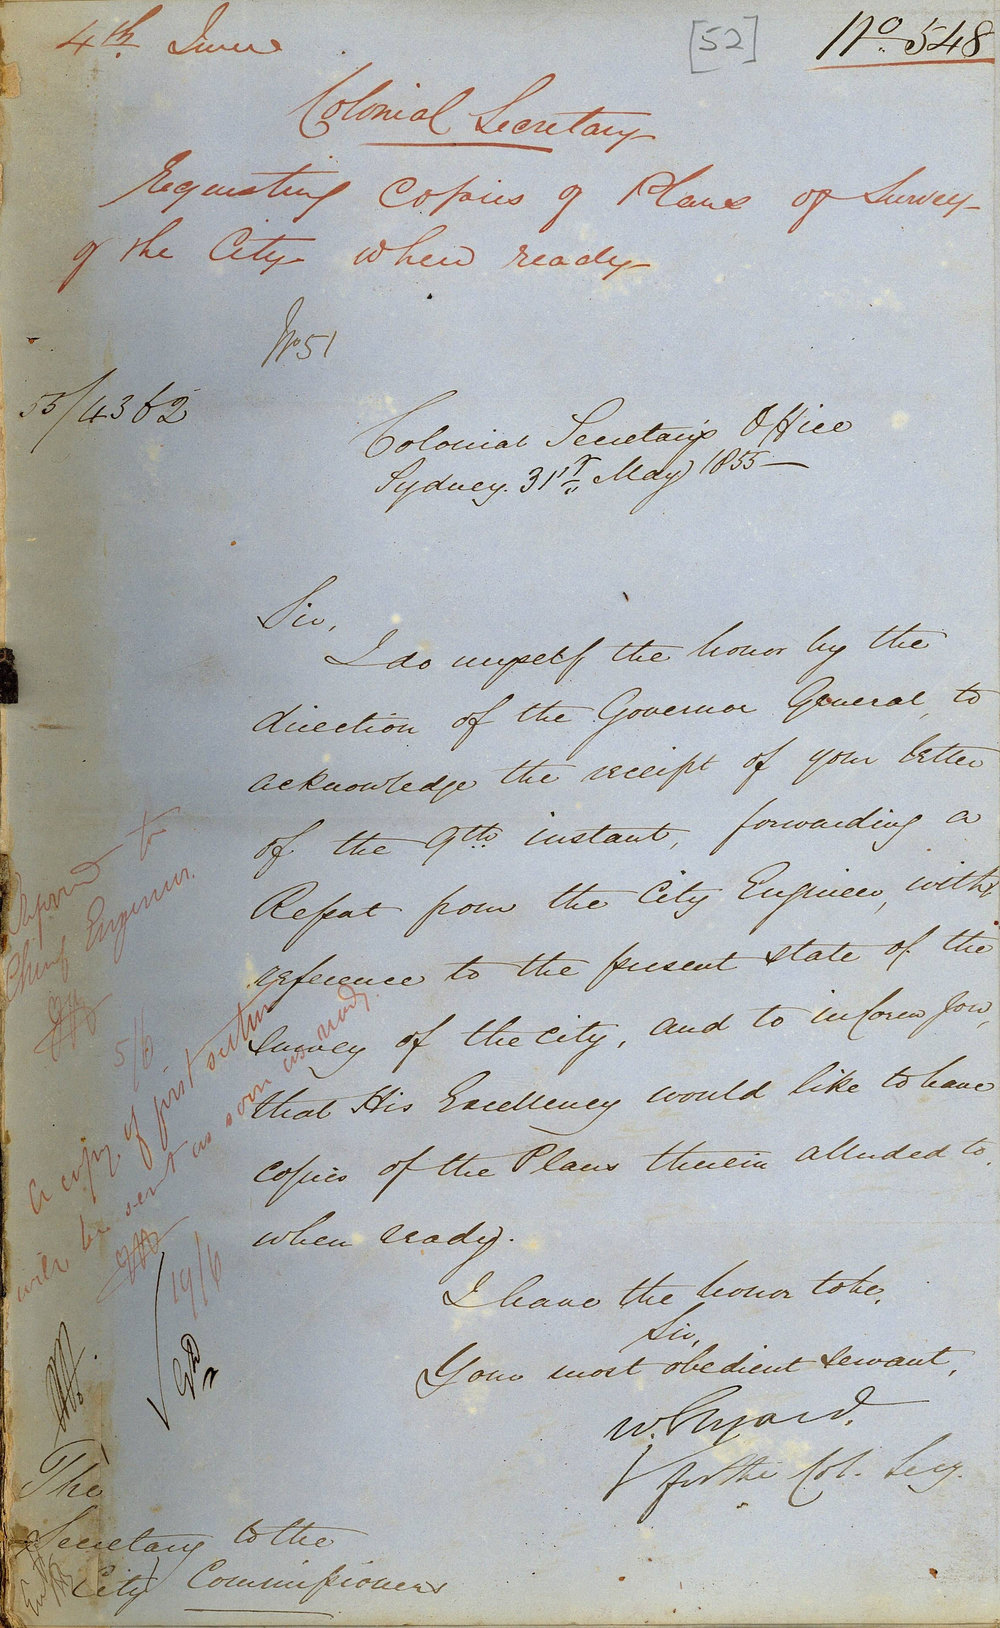 4th June
[52]
No. 548
Colonial Secretary
Requesting Copies of Plans of Survey
of the City when ready
No 51
55/4362
Colonial Secretary's Office
Sydney. 31st May 1855
Sir,
I do myself the honor by the
direction of the Governor General, to
acknowledge the receipt of your letter
of the 9th instant, forwarding a
Report from the City Engineer, with
reference to the present state of the
Survey of the City, and to inform you,
that His Excellency would like to have
copies of the Plans therein alluded to,
when ready.
I have the honor to be,
Sir,
Your most obedient servant,
W. Elyard.
for the Col. Secy.
Referred to
Chief Engineer.
5/6
A copy of first section
will be sent as soon as ready
19/6
The
Secretary to the
City Commissioners